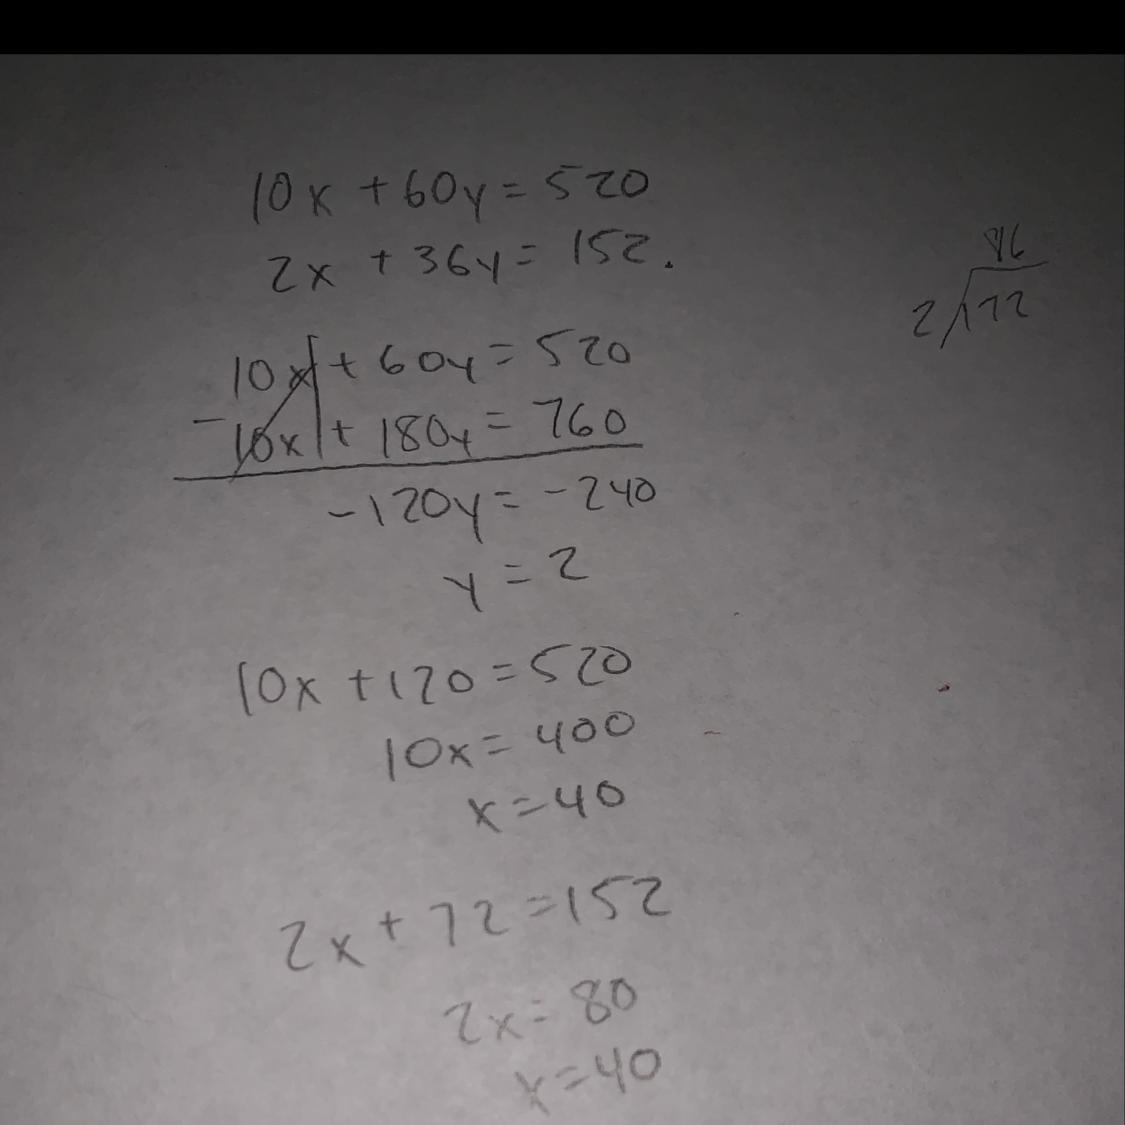 10x + 60y = 520
2x + 36y = 152.
10x + 60y = 520
- 10x + 180y = 760
-120y = -240
y = 2
10x + 120 = 520
10x = 400
x = 40
2x + 72 = 152
2x = 80
x = 40
2 172